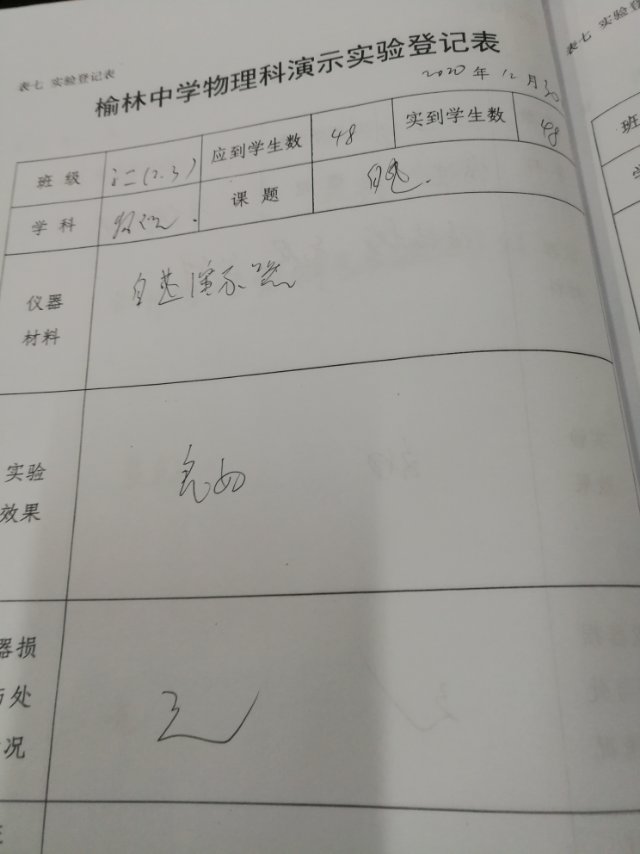 表七 实验登记表
榆林中学物理科演示实验登记表
2020年12月30
班级 (2.3) 应到学生数 48 实到学生数 48
学科 物理. 课题 自感.
仪器材料 自感演示器
实验效果 良好
器损
与处
情况 无
表七 实验登
班